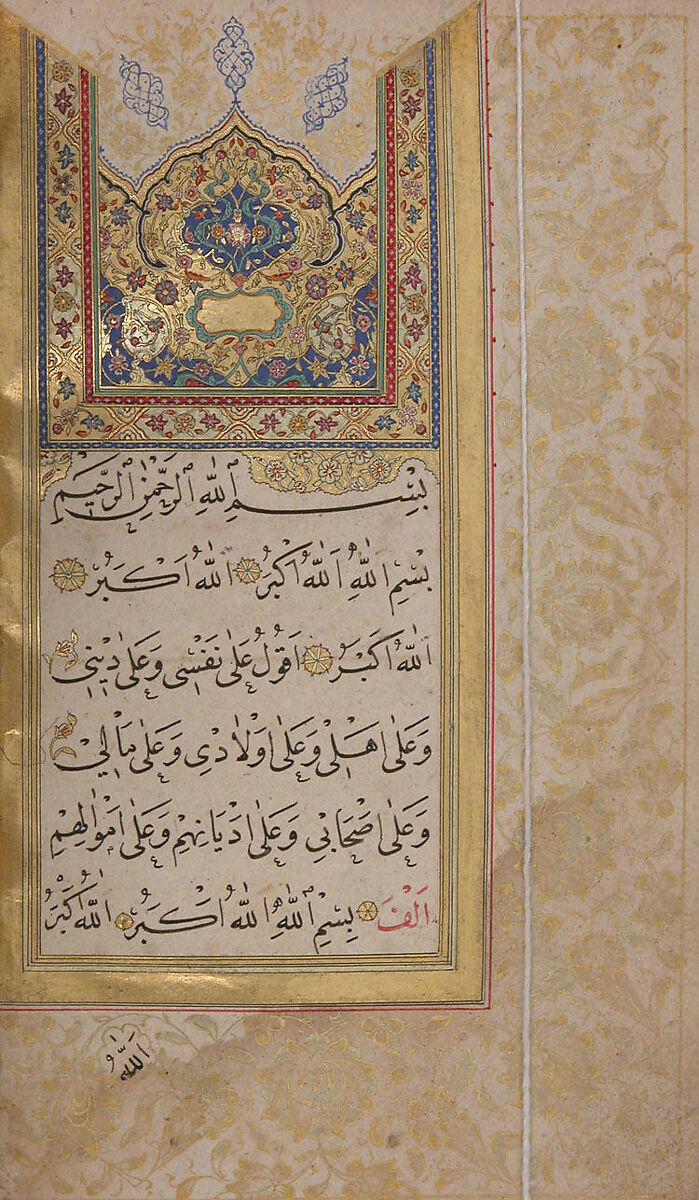 بِسْمِ ٱللهِ ٱلرَّحْمٰنِ ٱلرَّحِيمِ
بِسْمِ اللهِ اَللهُ اَكْبَرُ اَللهُ اَكْبَرُ
اَللهُ اَكْبَرُ اَقُولُ عَلٰى نَفْسِى وَعَلٰى دِيْنِى
وَعَلٰى اَهْلِى وَعَلٰى اَوْلَادِى وَعَلٰى مَالِيْ
وَعَلٰى اَصْحَابِي وَعَلٰى اَدْيَانِهِمْ وَعَلٰى اَمْوَالِهِمْ
اَلْفَ بِسْمِ اللهِ اَللهُ اَكْبَرُ اَللهُ اَكْبَرُ
اَللهُ